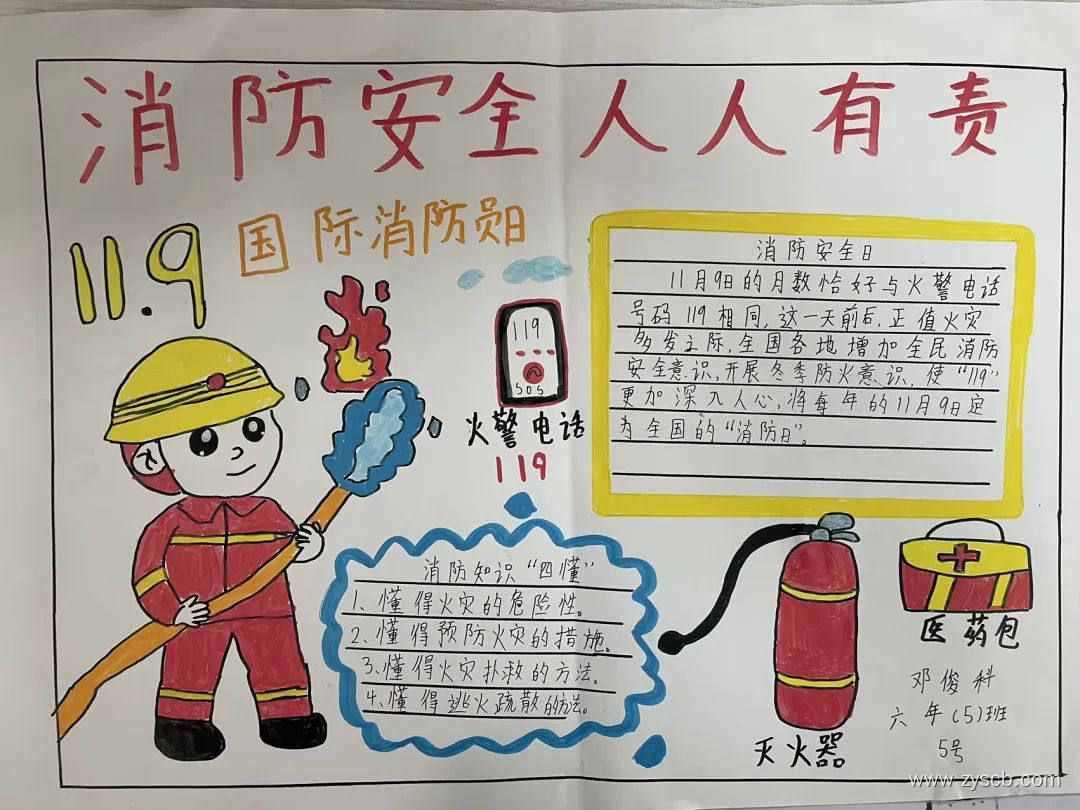 消防安全人人有责
11.9
国际消防员日
119
SOS
火警电话
119
消防安全日
11月9日的月数恰好与火警电话
号码119相同,这一天前后,正值火灾
多发之际,全国各地增加全民消防
安全意识,开展冬季防火意识,使“119”
更加深入人心,将每年的11月9日定
为全国的“消防日”。
消防知识“四懂”
1、懂得火灾的危险性。
2、懂得预防火灾的措施。
3、懂得火灾扑救的方法。
4、懂得逃火疏散的方法。
灭火器
医药包
邓俊科
六年(5)班
5号
www.zyscb.com